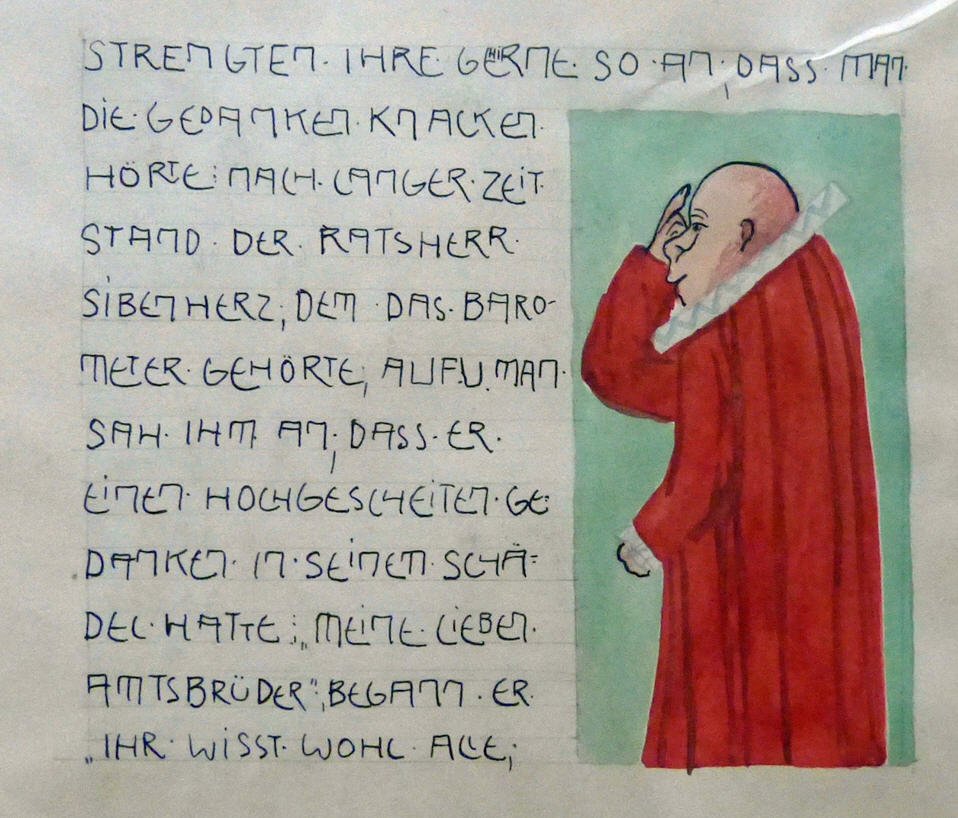 STRENGTEN · IHRE GEHIRNE · SO · AN, DASS · MAN ·
DIE · GEDANKEN · KNACKEN ·
HÖRTE : NACH · LANGER · ZEIT ·
STAND · DER · RATSHERR ·
SIBENHERZ, DEM · DAS · BARO-
METER · GEHÖRTE, AUF U. MAN ·
SAH · IHM AN, DASS · ER ·
EINEN · HOCHGESCHEITEN · GE:
DANKEN · IN · SEINEM · SCHÄ=
DEL · HATTE : „MEINE · LIEBEN ·
AMTSBRÜDER", BEGANN · ER ·
„IHR · WISST · WOHL · ALLE,